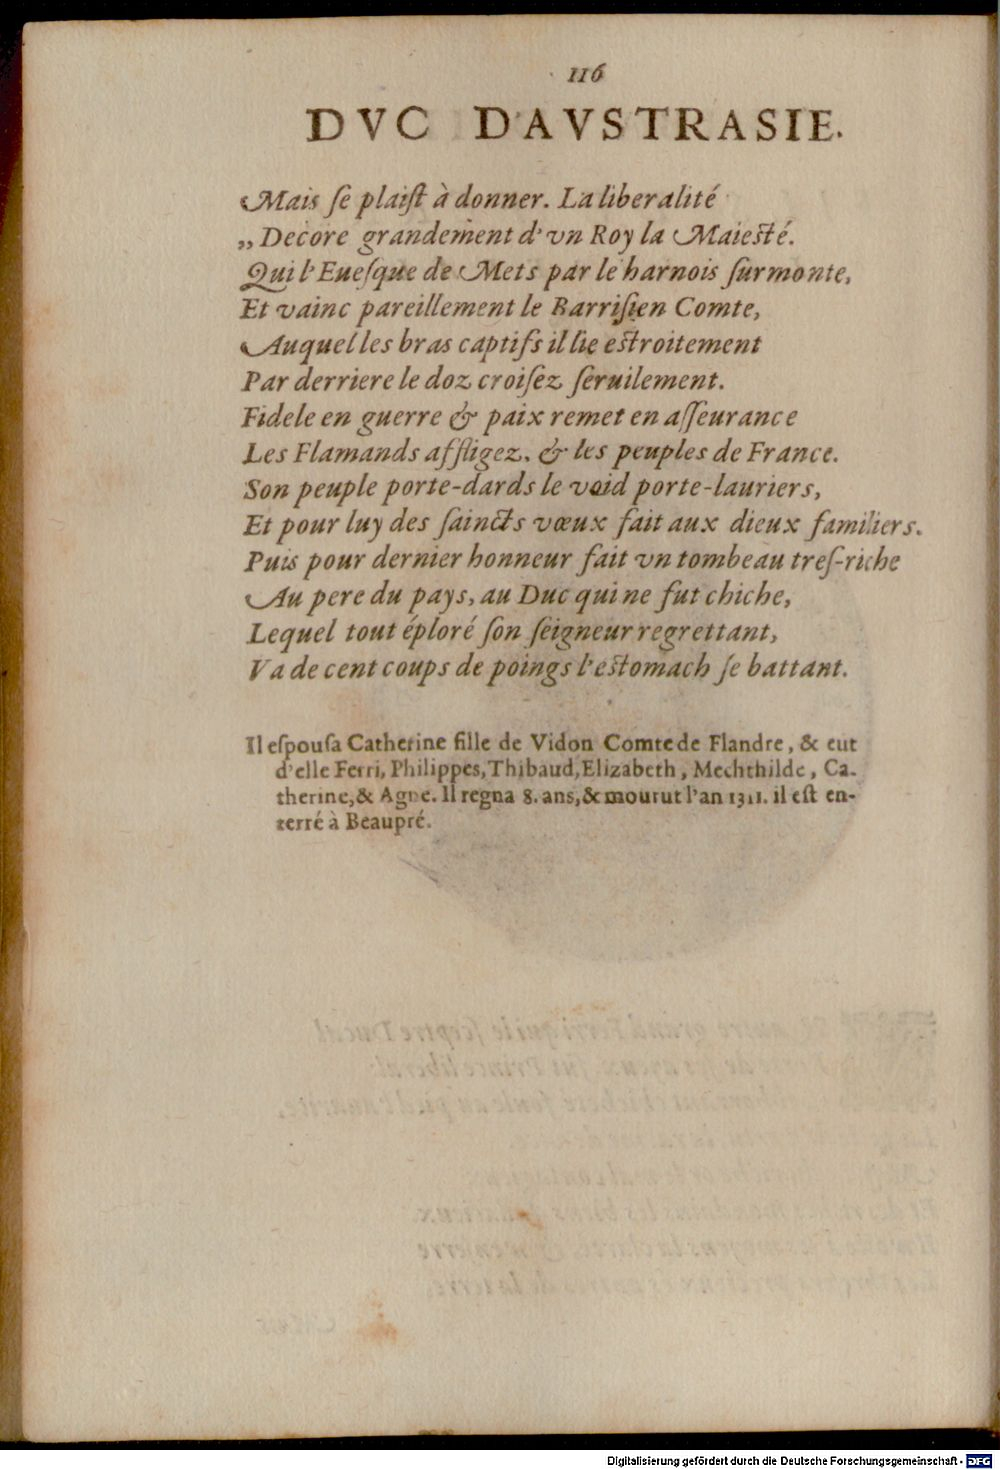 116
DVC D'AVSTRASIE.
Mais ſe plaiſt à donner. La liberalité
„ Decore grandement d'vn Roy la Maieſté.
Qui l'Eueſque de Mets par le harnois ſurmonte,
Et vainc pareillement le Barriſien Comte,
Auquel les bras captifs il lie eſtroitement
Par derriere le doz croiſez ſeruilement.
Fidele en guerre & paix remet en aſſeurance
Les Flamands affligez, & les peuples de France.
Son peuple porte-dards le void porte-lauriers,
Et pour luy des ſaincts vœux fait aux dieux familiers.
Puis pour dernier honneur fait vn tombeau treſ-riche
Au pere du pays, au Duc qui ne fut chiche,
Lequel tout éploré ſon ſeigneur regrettant,
Va de cent coups de poings l'eſtomach ſe battant.
Il eſpouſa Catherine fille de Vidon Comte de Flandre, & eut
d'elle Ferri, Philippes, Thibaud, Elizabeth, Mechthilde, Ca-
therine, & Agne. Il regna 8. ans, & mourut l'an 1311. il eſt en-
terré à Beaupré.
Digitalisierung gefördert durch die Deutsche Forschungsgemeinschaft - DFG